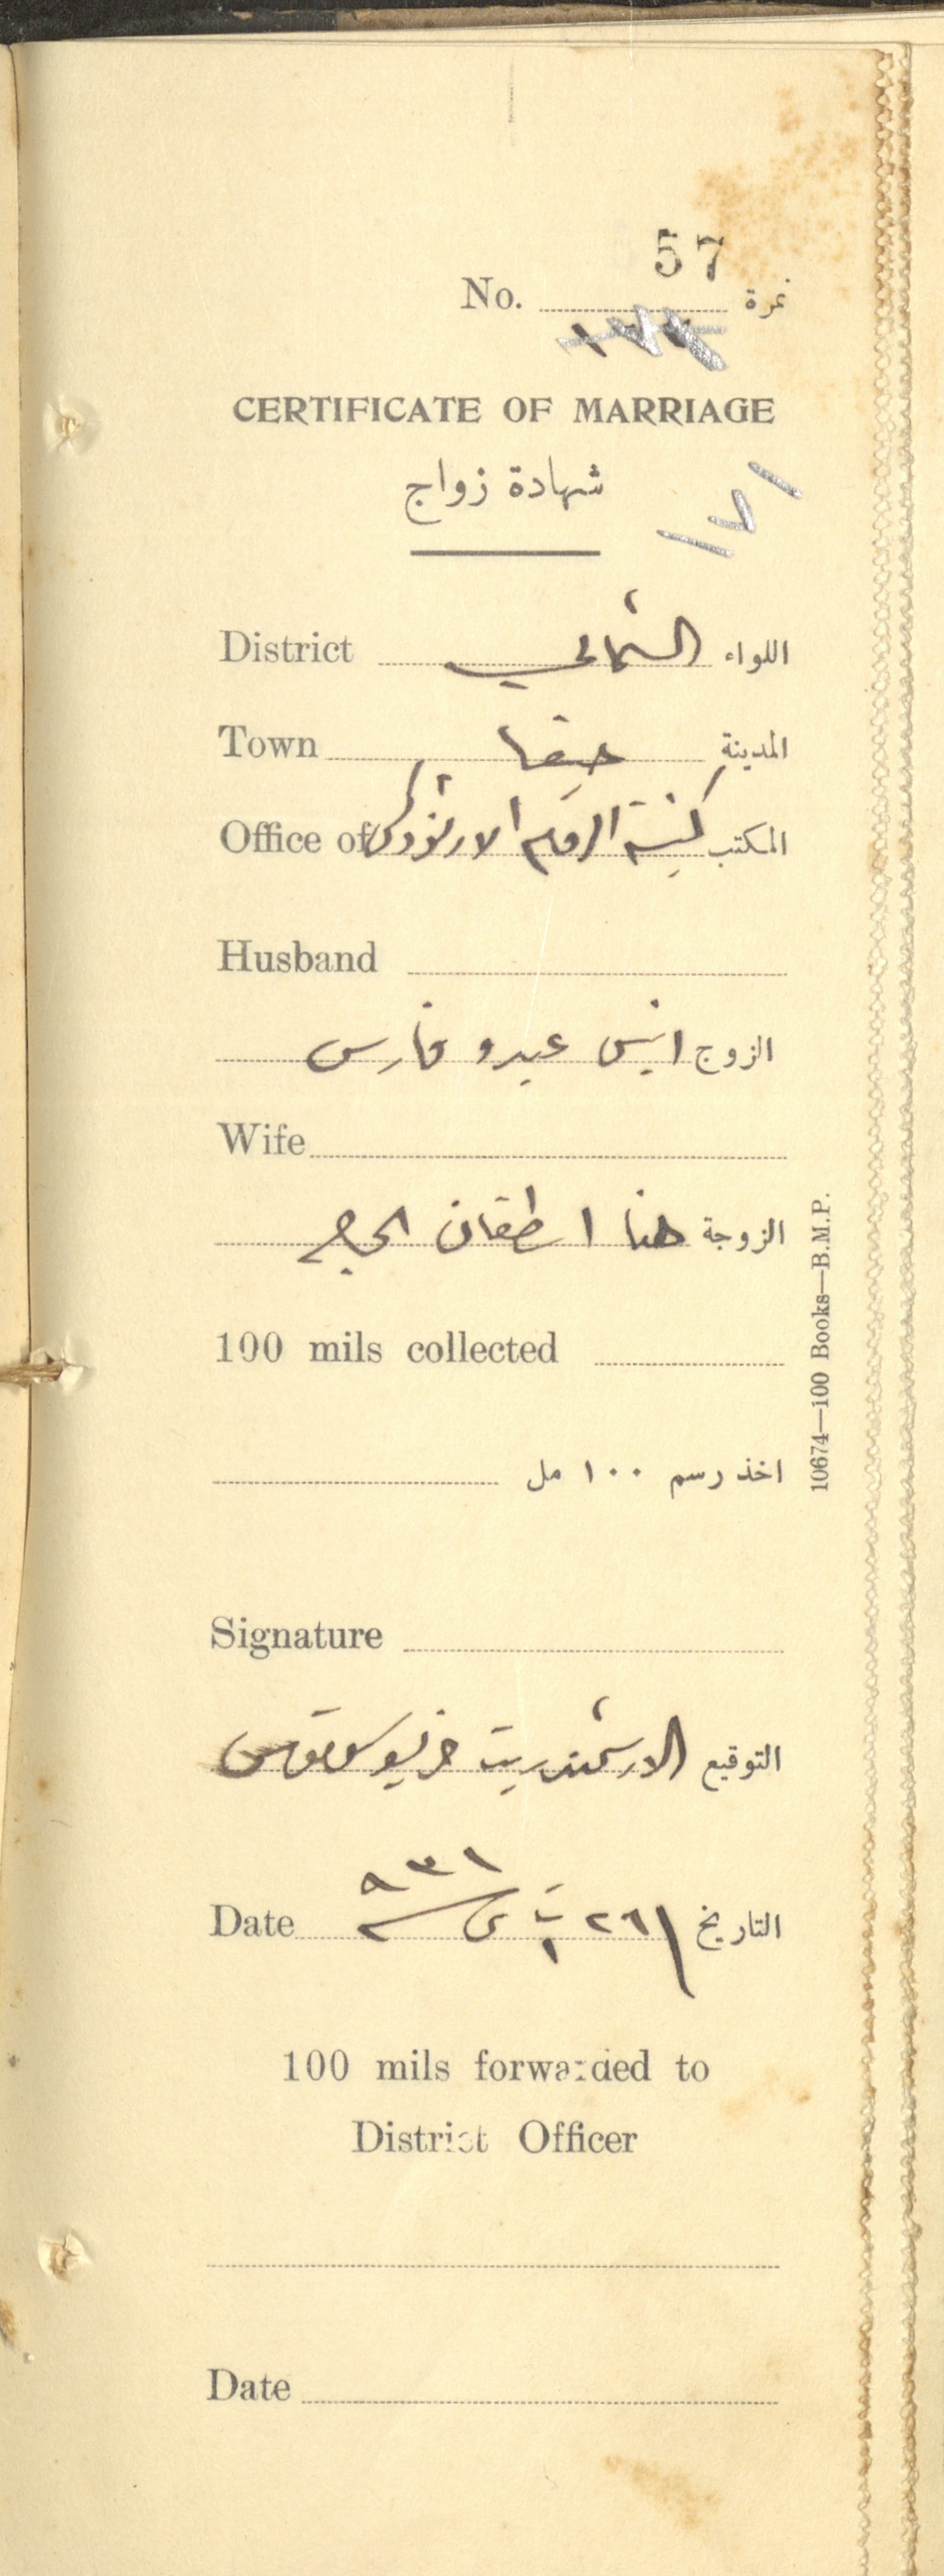 57
No. نمرة
CERTIFICATE OF MARRIAGE
شهادة زواج
١٧١
District الشمالي اللواء
Town حيفا المدينة
Office of كنيسة الروم الارثوذكس المكتب
Husband
الزوج انيس عبدو فارس
Wife
الزوجة هنا اسطفان الحاج
100 mils collected
اخذ رسم ١٠٠ مل
10674—100 Books—B.M.P.
Signature
التوقيع الارشمندريت خريسوستوموس
Date ٢٦ ت١ سنة ٩٣١ التاريخ
100 mils forwarded to
District Officer
Date